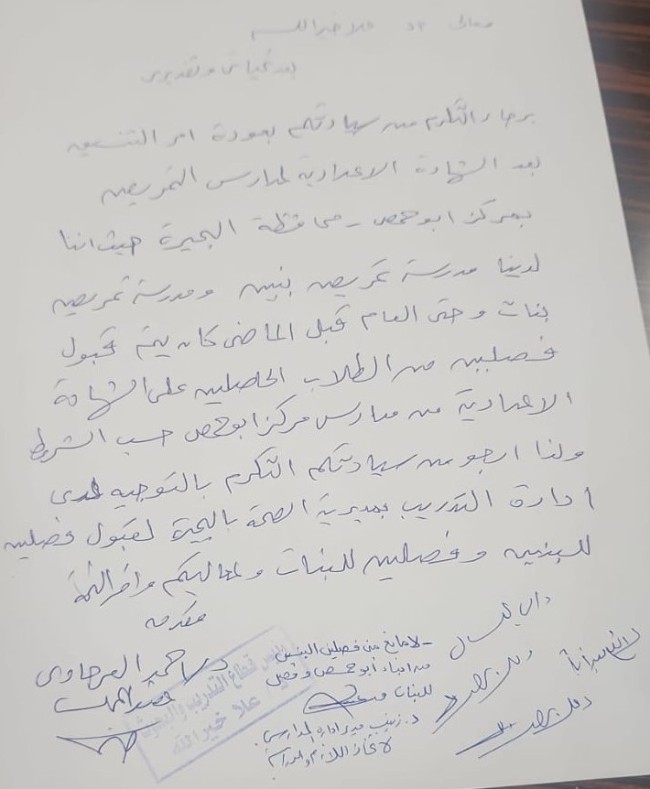 معالى د/ علا خير الله
بعد تحياتى وتقديرى
برجاء التكرم من سيادتكم بعودة امر التنسيق
بعد الشهادة الاعدادية لمدارس التمريض
بمركز ابوحمص - محافظة البحيرة حيث اننا
لدينا مدرسة تمريض بنين ومدرسة تمريض
بنات وحتى العام قبل الماضى كان يتم قبول
فصلين من الطلاب الحاصلين على الشهادة
الاعدادية من مدارس مركز ابوحمص حسب الشروط
ولذا ارجو من سيادتكم التكرم بالتوجيه لدى
ادارة التدريب بمديرية الصحة بالبحيرة لقبول فصلين
للبنين وفصلين للبنات ولمعاليكم وافر الشكر
مقدمه
د. احمد العرجاوى
- لا مانع من فصلين البنين
من ابناء أبو حمص وفصلين
للبنات
د. زينب مدير ادارة المدارس
لاتخاذ اللازم
رئيس قطاع التدريب والبحوث
علا خيرالله